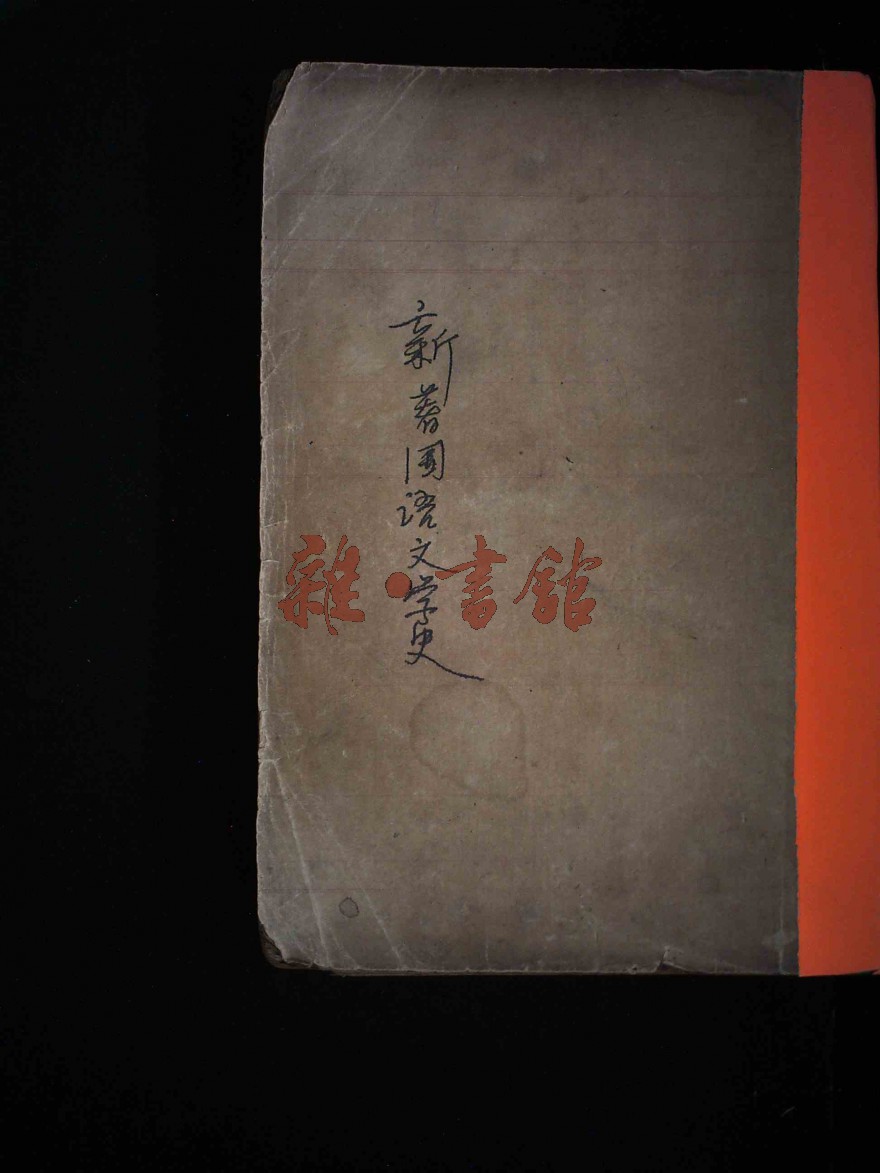 新著国语文学史
雜·書館